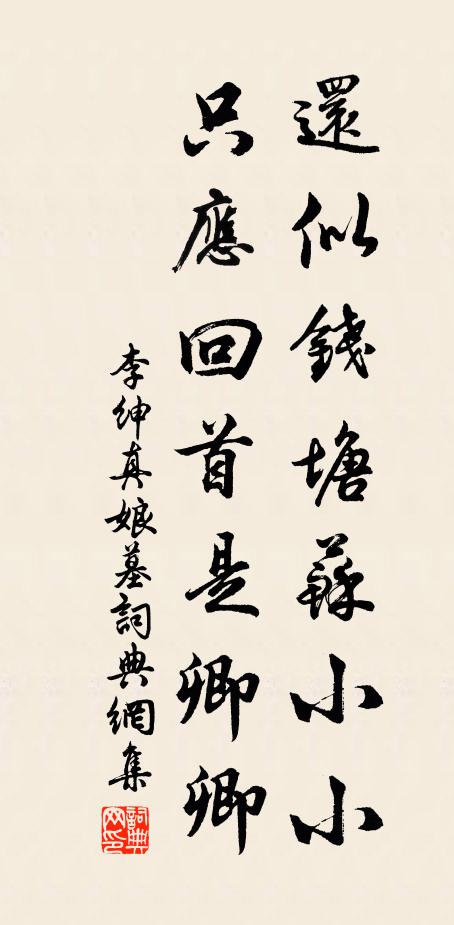 還似錢塘蘇小小
只應回首是卿卿
李紳真娘墓詞典網集
詞典網印